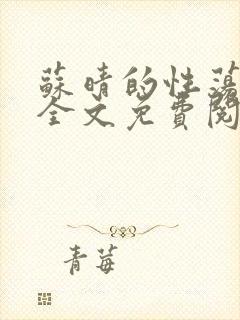 蘇晴的性蕩
全文免費閱
青莓